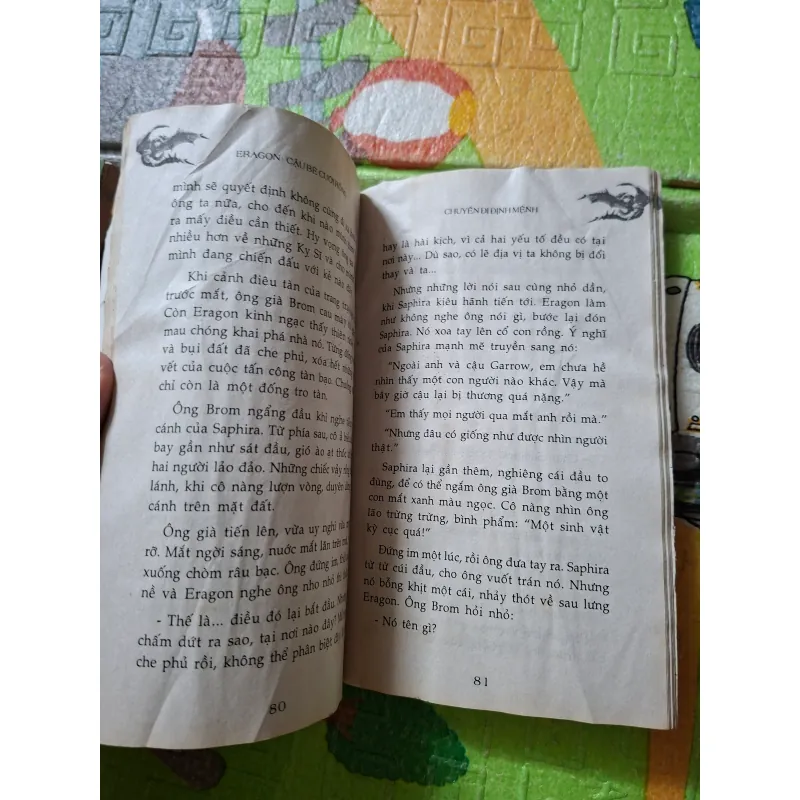 ERAGON - CẬU BÉ CƯỠI
mình sẽ quyết định không cùng đi
ông ta nữa, cho đến khi nào
ra mấy điều cần thiết. Hy vọng ông
nhiều hơn về những Kỵ Sĩ và cho
mình đang chiến đấu với kẻ nào
Khi cảnh điêu tàn của trang
trước mắt, ông già Brom cau mày
Còn Eragon kinh ngạc thấy thiên
mau chóng khai phá nhà nó. Từng
và bụi đất đã che phủ, xóa hết
vết của cuộc tấn công tàn bạo.
chỉ còn là một đống tro tàn.
Ông Brom ngẩng đầu khi nghe
cánh của Saphira. Từ phía sau, cô ả
bay gần như sát đầu, gió ào ạt
hai người lảo đảo. Những chiếc vảy
lánh, khi cô nàng lượn vòng, duyên
cánh trên mặt đất.
Ông già tiến lên, vừa uy nghi vừa
rỡ. Mắt ngời sáng, nước mắt lăn trên
xuống chòm râu bạc. Ông đứng im,
nề và Eragon nghe ông nho nhỏ
- Thế là... điều đó lại bắt đầu.
chấm dứt ra sao, tại nơi nào đây?
che phủ rồi, không thể phân biệt
80
CHUYẾN ĐI ĐỊNH MỆNH
hay là hài kịch, vì cả hai yếu tố đều có tại
nơi này... Dù sao, có lẽ địa vị ta không bị đổi
thay và ta...
Nhưng những lời nói sau cùng nhỏ dần,
khi Saphira kiêu hãnh tiến tới. Eragon làm
như không nghe ông nói gì, bước lại đón
Saphira. Nó xoa tay lên cổ con rồng. Ý nghĩ
của Saphira mạnh mẽ truyền sang nó:
“Ngoài anh và cậu Garrow, em chưa hề
nhìn thấy một con người nào khác. Vậy mà
bây giờ cậu lại bị thương quá nặng.”
“Em thấy mọi người qua mắt anh rồi mà.”
“Nhưng đâu có giống như được nhìn người
thật.”
Saphira lại gần thêm, nghiêng cái đầu to
đùng, để có thể ngắm ông già Brom bằng một
con mắt xanh màu ngọc. Cô nàng nhìn ông
lão trừng trừng, bình phẩm: “Một sinh vật
kỳ cục quá!”
Đứng im một lúc, rồi ông đưa tay ra. Saphira
từ từ cúi đầu, cho ông vuốt trán nó. Nhưng
nó bỗng khịt một cái, nhảy thót về sau lưng
Eragon. Ông Brom hỏi nhỏ:
- Nó tên gì?
81